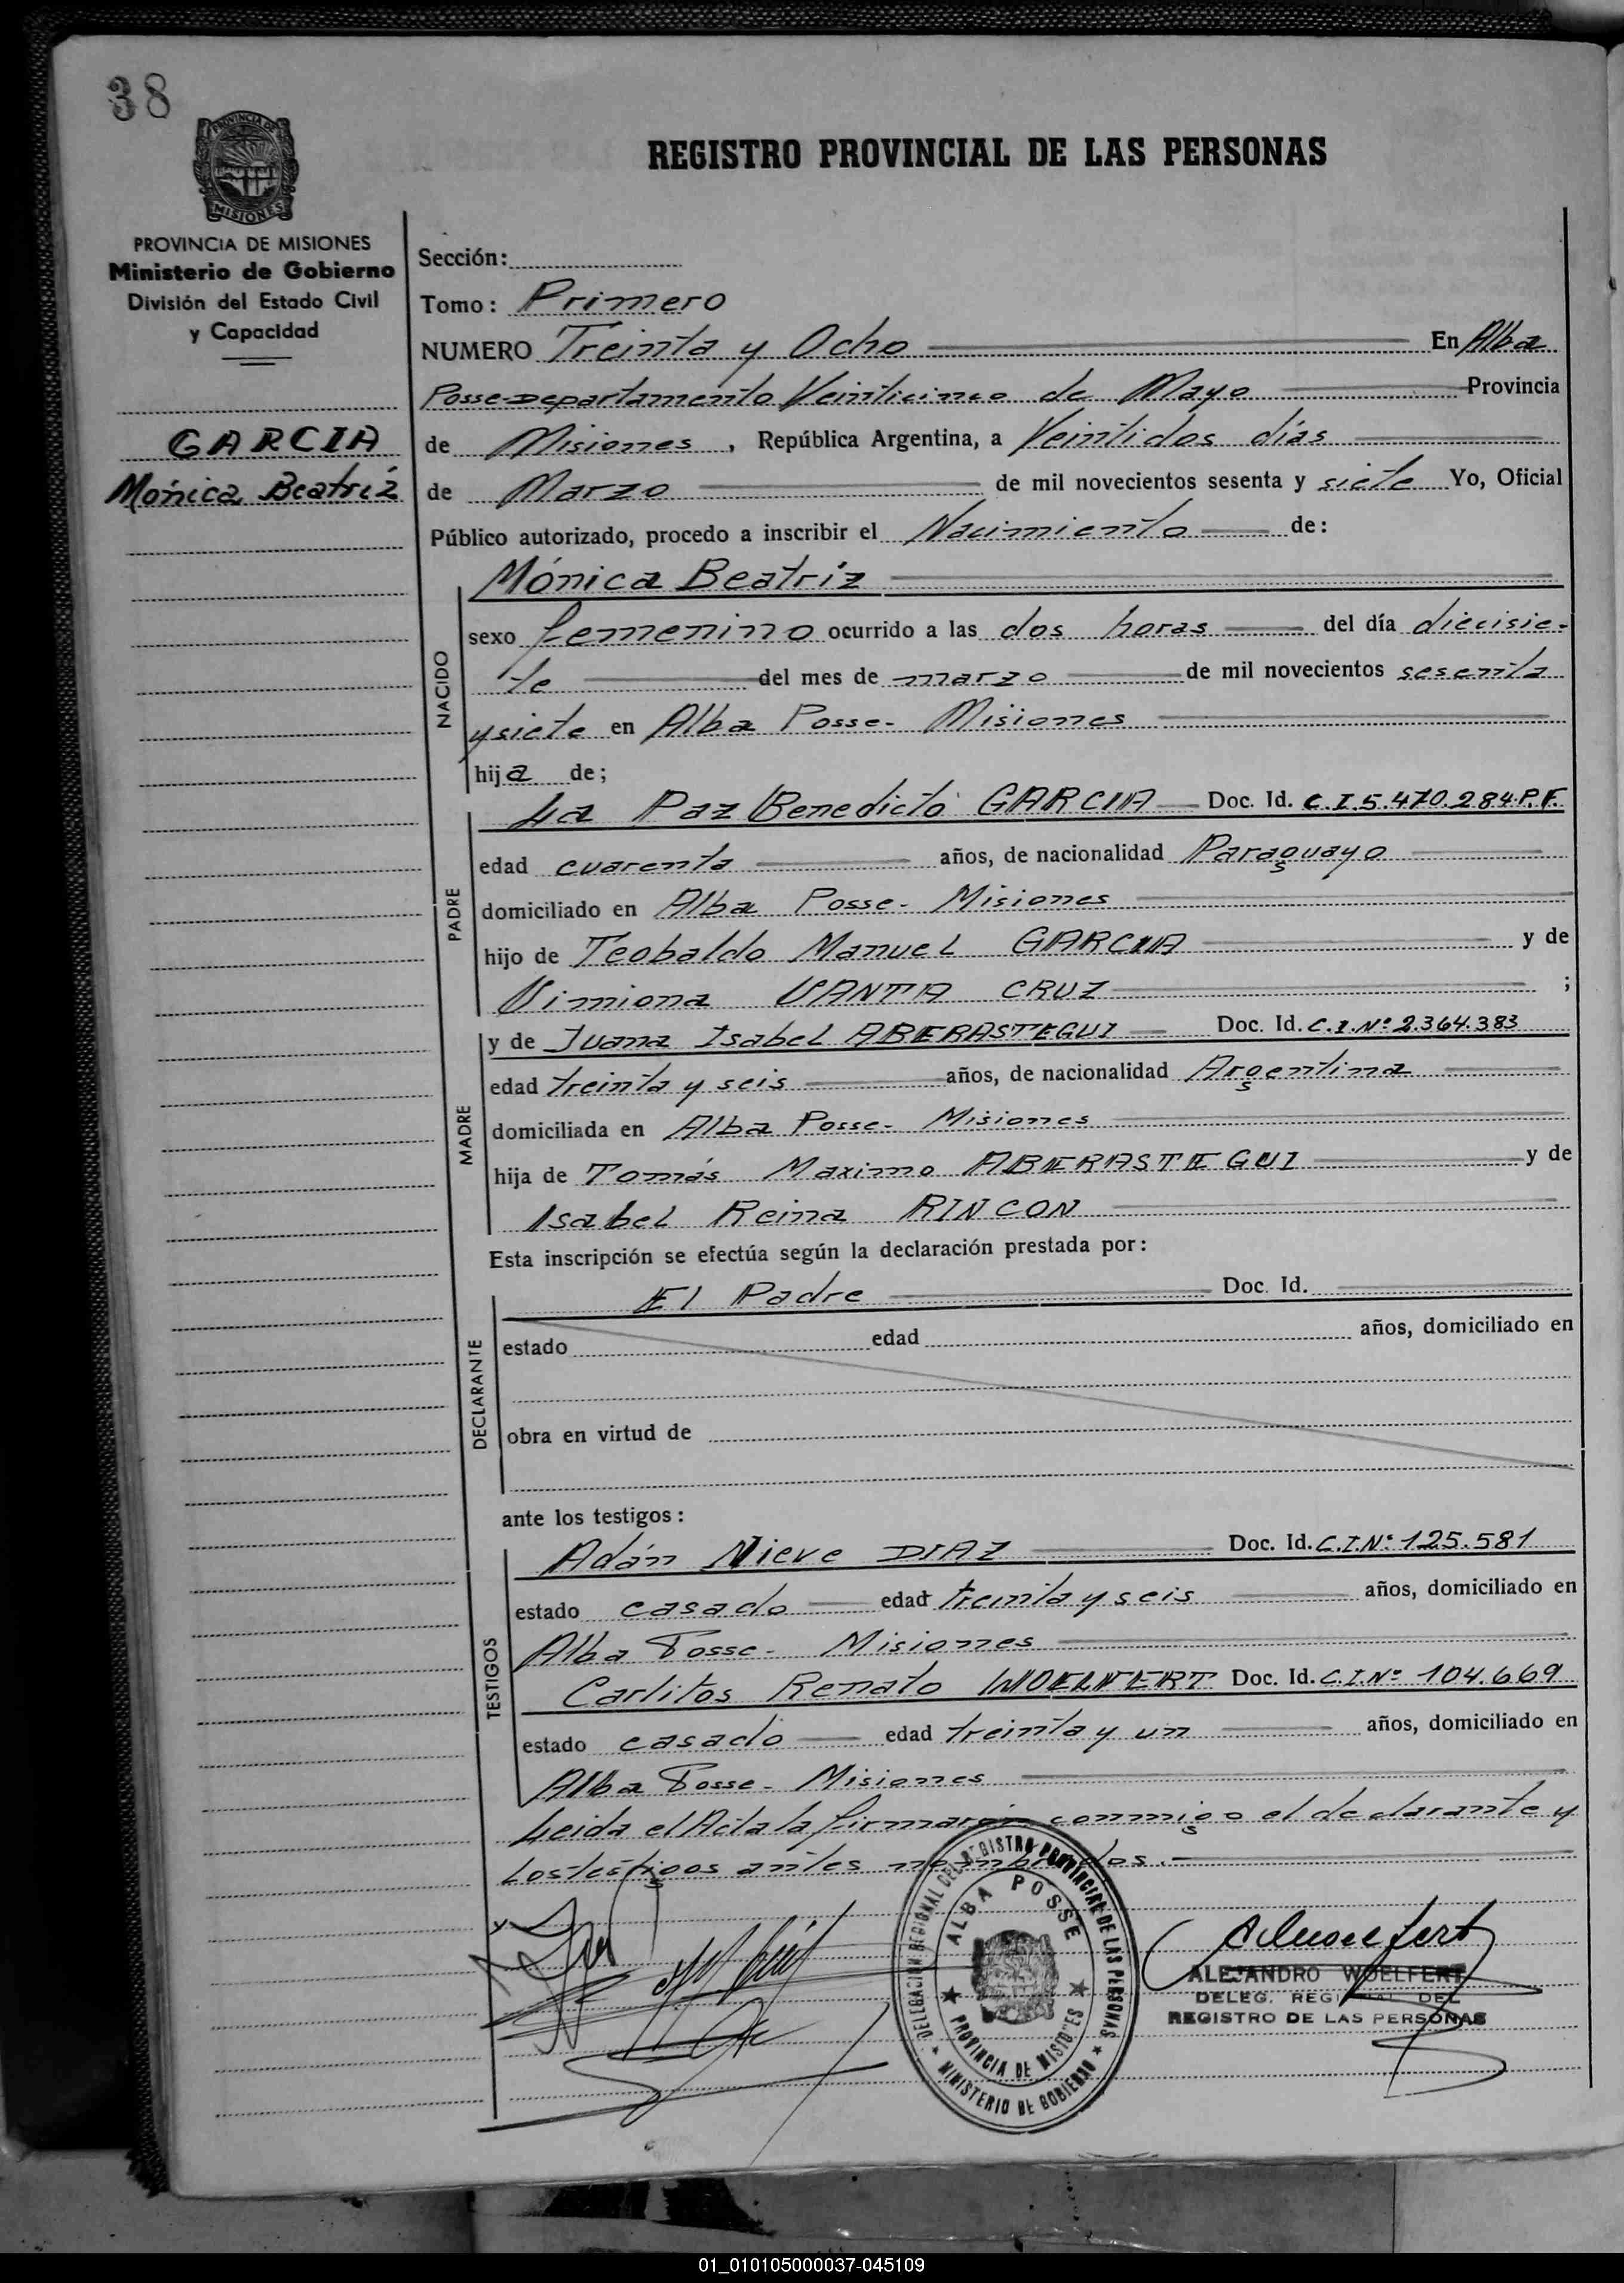 38
PROVINCIA DE
MISIONES
REGISTRO PROVINCIAL DE LAS PERSONAS
PROVINCIA DE MISIONES
Ministerio de Gobierno
División del Estado Civil
y Capacidad
GARCIA
Mónica Beatriz
Sección:
Tomo: Primero
NUMERO Treinta y Ocho En Alba
Posse-Departamento Veinticinco de Mayo Provincia
de Misiones, República Argentina, a Veintidos días
de Marzo de mil novecientos sesenta y siete Yo, Oficial
Público autorizado, procedo a inscribir el Nacimiento de:
NACIDO
Mónica Beatriz
sexo femenino ocurrido a las dos horas del día diecisie-
te del mes de marzo de mil novecientos sesenta
y siete en Alba Posse- Misiones
hija de;
PADRE
La Paz Benedicto GARCIA Doc. Id. C.I.5.470.284.P.F.
edad cuarenta años, de nacionalidad Paraguayo
domiciliado en Alba Posse- Misiones
hijo de Teobaldo Manuel GARCIA y de
Vimiona SANTA CRUZ ;
MADRE
y de Juana Isabel ABERASTEGUI Doc. Id. C.I.Nº 2.364.383
edad treinta y seis años, de nacionalidad Argentina
domiciliada en Alba Posse- Misiones
hija de Tomás Maximo ABERASTEGUI y de
Isabel Reina RINCON
Esta inscripción se efectúa según la declaración prestada por:
DECLARANTE
El Padre Doc. Id.
estado edad años, domiciliado en
obra en virtud de
ante los testigos:
TESTIGOS
Adán Nieve DIAZ Doc. Id. C.I.Nº 125.581
estado casado edad treinta y seis años, domiciliado en
Alba Posse- Misiones
Carlitos Renato WOELFERT Doc. Id. C.I.Nº 104.669
estado casado edad treinta y un años, domiciliado en
Alba Posse- Misiones
Leida el Acta la firmarón conmigo el declarante y
los testigos antes nombrados.
DELEGACION REGIONAL DEL REGISTRO PROVINCIAL DE LAS PERSONAS
ALBA POSSE
PROVINCIA DE MISIONES
MINISTERIO DE GOBIERNO
ALEJANDRO WOELFERT
DELEG. REGIONAL DEL
REGISTRO DE LAS PERSONAS
01_010105000037-045109